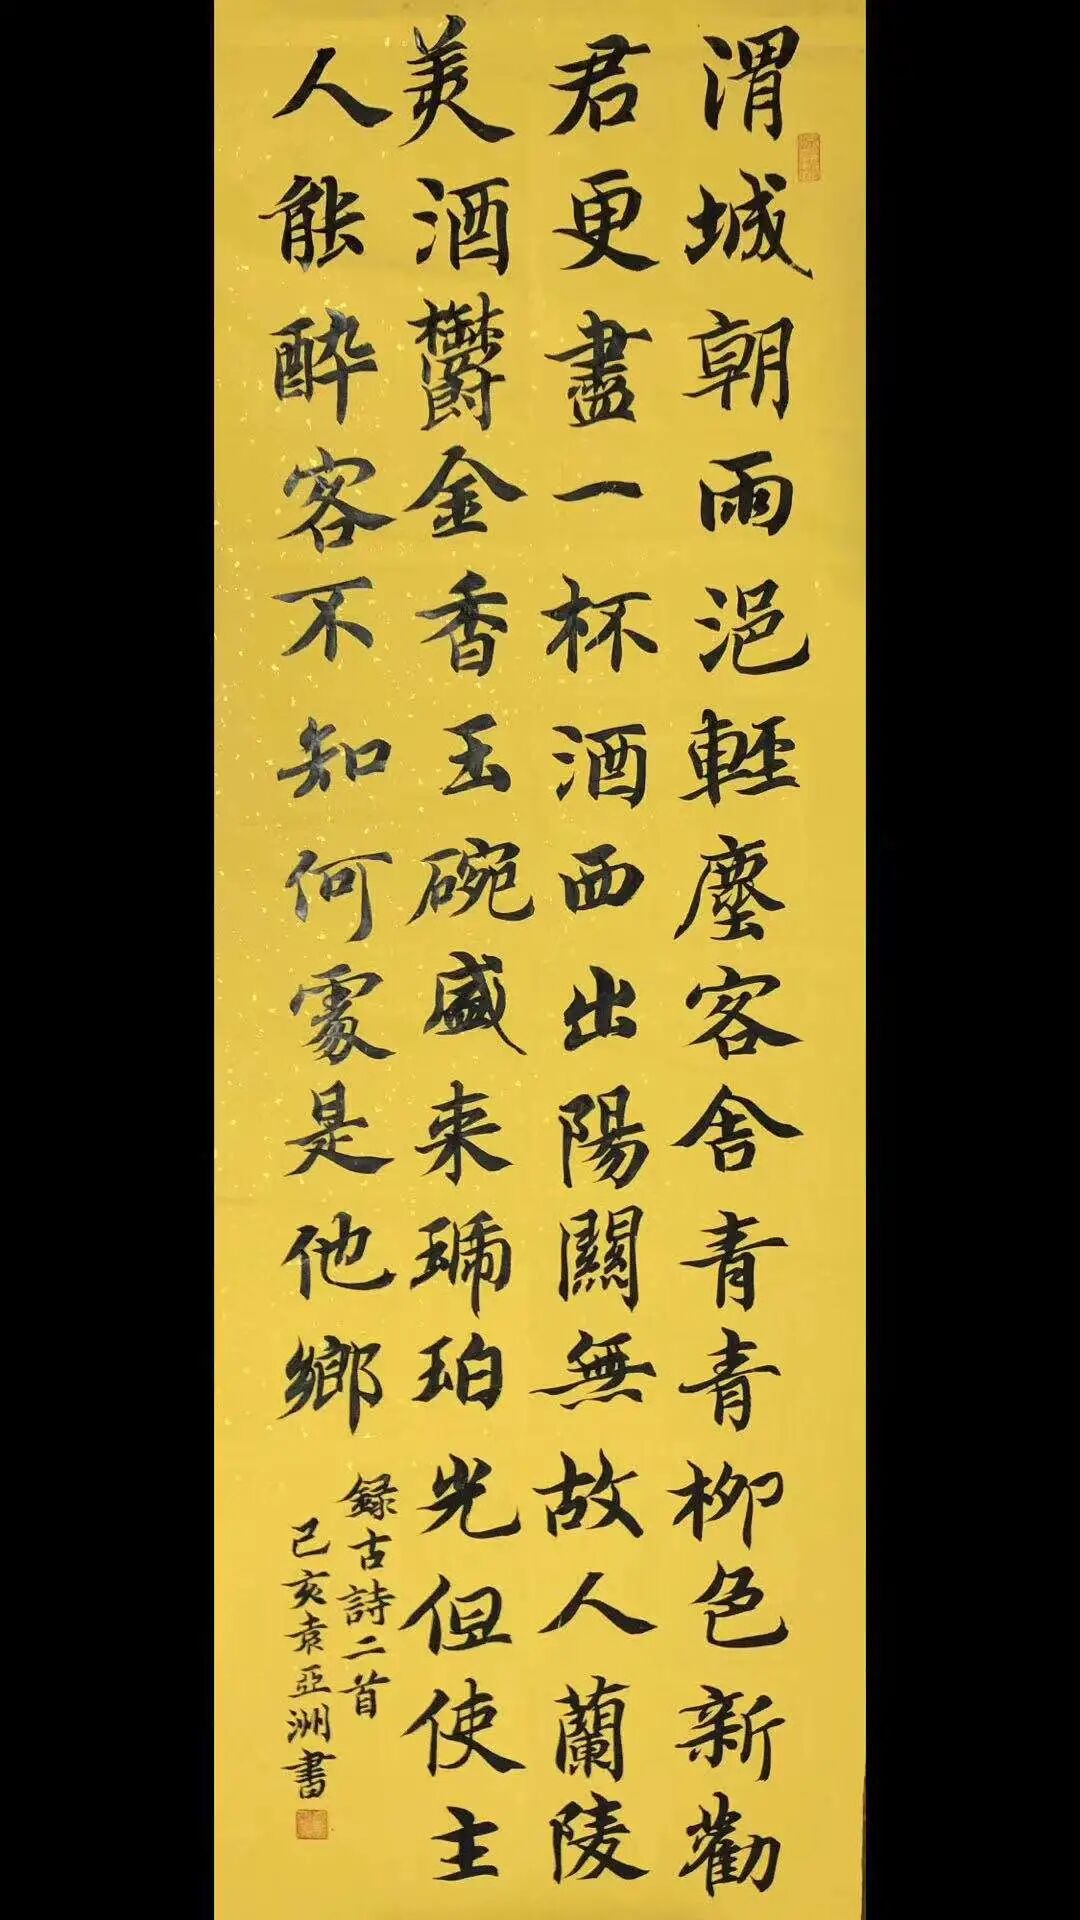 渭城朝雨浥輕塵客舍青青柳色新勸
君更盡一杯酒西出陽關無故人蘭陵
美酒鬱金香玉碗盛来琥珀光但使主
人能醉客不知何處是他鄉
録古詩二首
己亥袁亞洲書